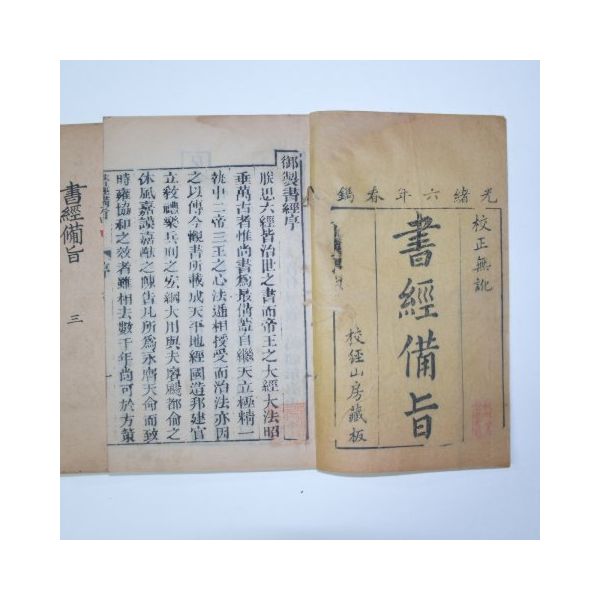 光緒六年春鐫
校正無訛
書經備旨
校經山房藏板
御製書經序
朕思六經皆治世之書而帝王之大經大法昭
垂萬古者惟尚書為最備蓋自繼天立極精一
執中二帝三王之心法遞相授受而治法亦因
之以傳今觀書所載成天平地經國造邦建官
立教禮樂兵刑之宏綱大用與夫賡颺都俞之
休風嘉謨嘉猷之陳告凡所為永膺天命而致
時雍協和之效者雖相去數千年尚可於方策
書經備旨
三